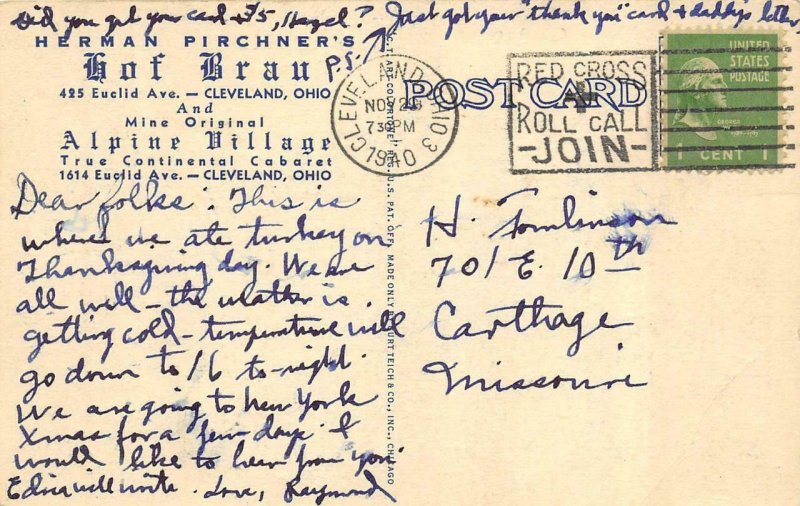 Did you get your card & $5, Hazel? Just got your "thank you" card & daddy's letter
P.S.
HERMAN PIRCHNER'S
Hof Brau
425 Euclid Ave. — CLEVELAND, OHIO
And
Mine Original
Alpine Village
True Continental Cabaret
1614 Euclid Ave. — CLEVELAND, OHIO
Dear folks: This is
where we ate turkey on
Thanksgiving day. We are
all well - the weather is
getting cold - temperature will
go down to 16 to-night.
We are going to New York
Xmas for a few days. I
would like to hear from you.
Edna will write. Love, Raymond
C.T. ART-COLORTONE REG. U.S. PAT. OFF. MADE ONLY BY CURT TEICH & CO., INC., CHICAGO
POST CARD
CLEVELAND, OHIO 3
NOV 29
7 30 PM
1940
RED CROSS
ROLL CALL
-JOIN-
UNITED
STATES
POSTAGE
1 CENT 1
H. Tomlinson
701 E. 10th
Carthage
Missouri